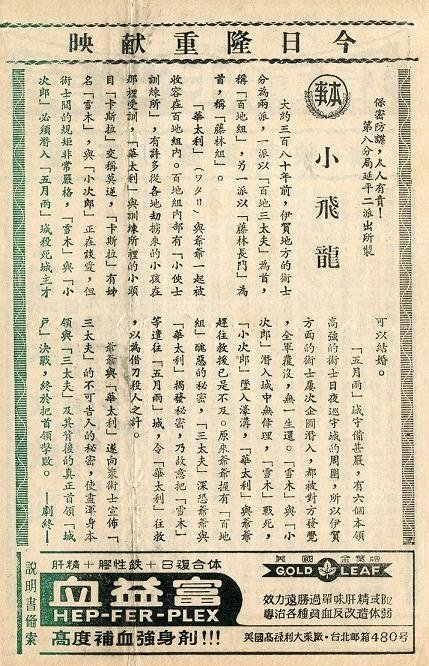 今日隆重獻映
保密防諜，人人有責！
第八分局延平二派出所製
本事
小飛龍
大約三百八十年前，伊賀地方的術士
分為兩派，一派以「百地三太夫」為首，
稱「百地組」，另一派以「藤林長門」為
首，稱「藤林組」。
「華太利」（ワタリ）與爺爺一起被
收容在百地組內。百地組內部有「小使士
訓練所」，有許多從各地劫擄來的小孩在
那裡受訓，「華太利」與訓練所裡的小頭
目「卡斯拉」交稱莫逆，「卡斯拉」有姊
名「雪木」，與「小次郎」正在談愛，但
術士間的規矩非常嚴格，「雪木」與「小
次郎」必須潛入「五月雨」城殺死城主才
可以結婚。
「五月雨」城守備甚嚴，有六個本領
高強的術士日夜巡守城的周圍，所以伊賀
方面的術士屢次企圖潛入，都被對方發覺
，全軍覆沒，無一生還。「雪木」與「小
次郎」潛入城中無倖理，「雪木」戰死，
「小次郎」墜入濠溝，「華太利」與爺爺
趕往救援已是不及。原來爺爺握有「百地
組」醜惡的秘密，「三太夫」深恐爺爺與
「華太利」揭發秘密，乃故意把「雪木」
等遣往「五月雨」城，令「華太利」往救
，以為借刀殺人之計。
爺爺與「華太利」遂向眾術士宣佈「
三太夫」的不可告人的秘密，使盡渾身本
領與「三太夫」及其背後的真正首領「城
戶」決戰，終於把首領擊敗。——劇終——
說明書備索
肝精＋膠性鉄＋B複合体
血益富
HEP-FER-PLEX
高度補血強身剤!!!
美國 金葉牌
GOLD LEAF
效力遠勝過單味肝精或B12
專治各種貧血反改造体弱
美國高祿利大藥廠·台北邮箱480号